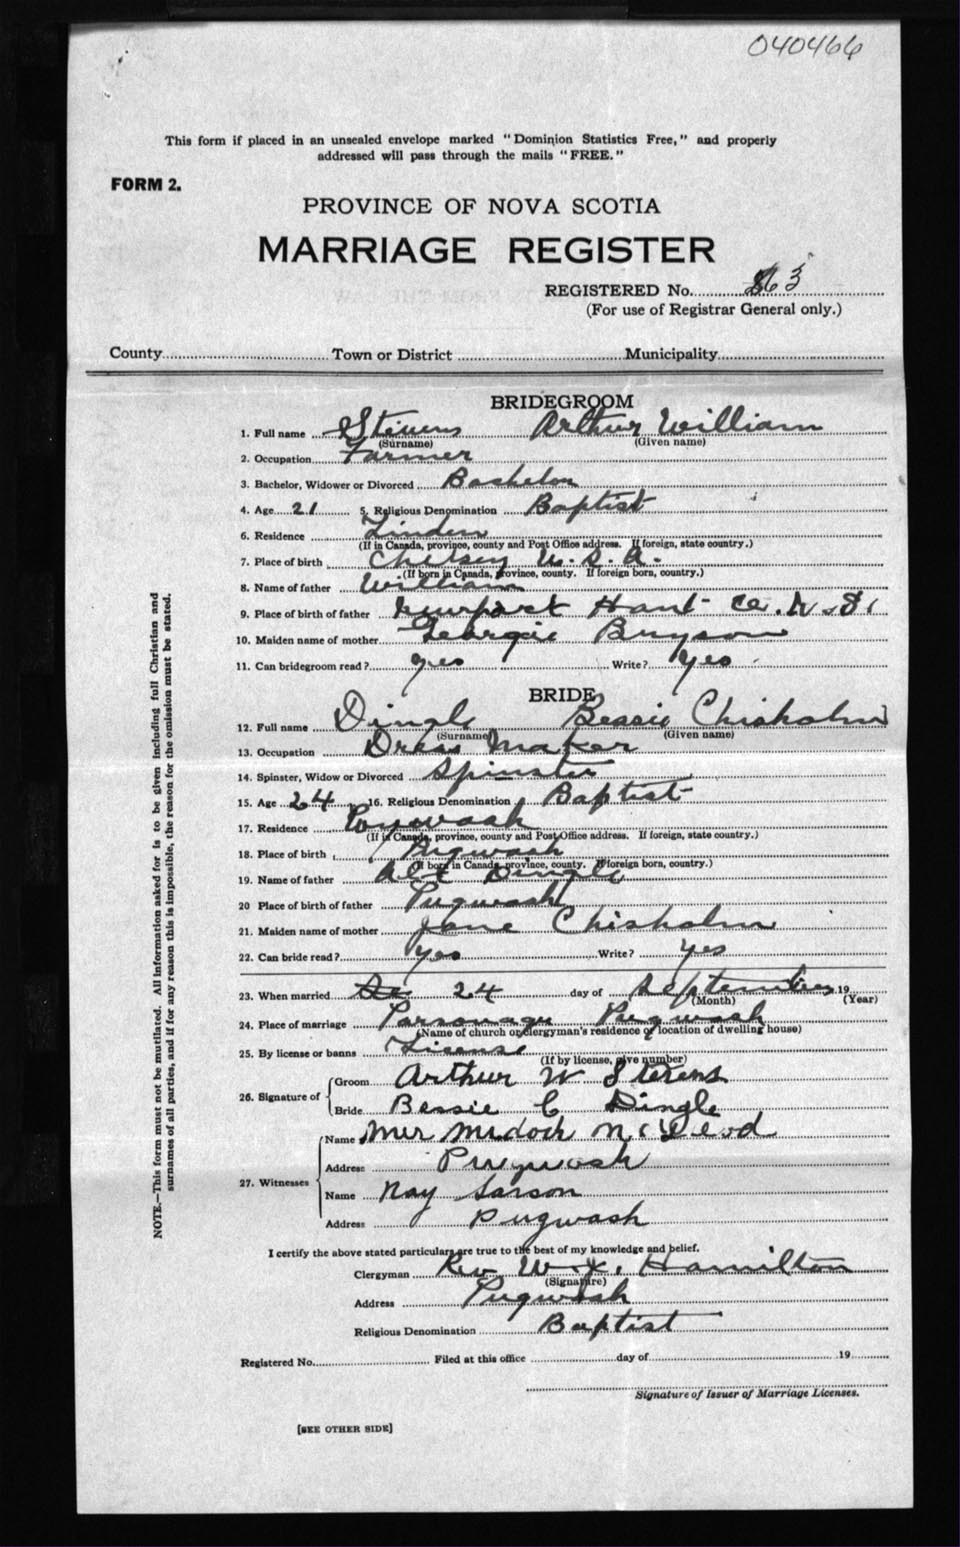 040466
This form if placed in an unsealed envelope marked "Dominion Statistics Free," and properly
addressed will pass through the mails "FREE."
FORM 2.
PROVINCE OF NOVA SCOTIA
MARRIAGE REGISTER
REGISTERED No. 63
(For use of Registrar General only.)
County Town or District Municipality
BRIDEGROOM
1. Full name Stevens Arthur William
(Surname) (Given name)
2. Occupation Farmer
3. Bachelor, Widower or Divorced Bachelor
4. Age 21 5. Religious Denomination Baptist
6. Residence Linden
(If in Canada, province, county and Post Office address. If foreign, state country.)
7. Place of birth Chelsey U.S.A.
(If born in Canada, province, county. If foreign born, country.)
8. Name of father William
9. Place of birth of father Newport Hant Co. N.S.
10. Maiden name of mother Georgie Bryson
11. Can bridegroom read? yes Write? yes
BRIDE
12. Full name Dingle Bessie Chisholm
(Surname) (Given name)
13. Occupation Dress Maker
14. Spinster, Widow or Divorced Spinster
15. Age 24 16. Religious Denomination Baptist
17. Residence Pugwash
(If in Canada, province, county and Post Office address. If foreign, state country.)
18. Place of birth Pugwash
(If born in Canada, province, county. If foreign born, country.)
19. Name of father Alex Dingle
20 Place of birth of father Pugwash
21. Maiden name of mother Jane Chisholm
22. Can bride read? yes Write? yes
23. When married 24 day of September 19
(Month) (Year)
24. Place of marriage Parsonage Pugwash
(Name of church or clergyman's residence or location of dwelling house)
25. By license or banns License
(If by license, give number)
26. Signature of Groom Arthur W Stevens
Bride Bessie C Dingle
27. Witnesses Name Mrs Murdoch McLeod
Address Pugwash
Name Ray Sarson
Address Pugwash
I certify the above stated particulars are true to the best of my knowledge and belief.
Clergyman Rev W. Hamilton
(Signature)
Address Pugwash
Religious Denomination Baptist
Registered No. Filed at this office day of 19
Signature of Issuer of Marriage Licenses.
[SEE OTHER SIDE]
NOTE.—This form must not be mutilated. All information asked for is to be given including full Christian and
surnames of all parties, and if for any reason this is impossible, the reason for the omission must be stated.